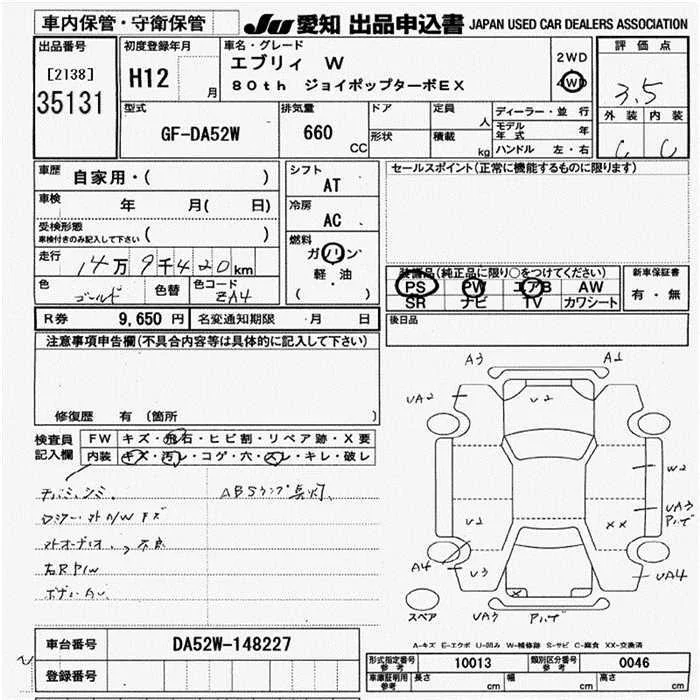 車内保管・守衛保管
JU 愛知 出品申込書 JAPAN USED CAR DEALERS ASSOCIATION
出品番号
[2138]
35131
初度登録年月
H12 月
車名・グレード
エブリィ W
80th ジョイポップターボEX
2WD
4WD
評価点
3.5
外装 内装
C C
型式
GF-DA52W
排気量
660
CC
ドア
形状
定員
人
積載
kg
ディーラー・並 行
モデル年式 年
ハンドル 左・右
車歴
自家用・( )
車検
年 月( 日)
受検形態
車検付きのみ記入して下さい ( )
走行
14万9千420km
色
ゴールド
色替
色コード
ZA4
シフト
AT
冷房
AC
燃料
ガソリン
軽・油
( )
セールスポイント(正常に機能するものに限ります)
装備品(純正品に限り○をつけてください)
PS PW エアB AW
SR ナビ TV カワシート
新車保証書
有・無
後日品
R券 9,650 円 名変通知期限 月 日
注意事項申告欄(不具合内容等は具体的に記入して下さい)
修復歴 有 (箇所 )
検査員
記入欄
FW キズ・飛石・ヒビ割・リペア跡・X要
内装 キズ・汚レ・コゲ・穴・スレ・キレ・破レ
ABSランプ点灯
不良
右RP/W
A3 A1
UA2 U2
W2
UA3
U2 XX
A4 U3 UA4
X
スペア UA3
A-キズ E-エクボ U-凹み W-補修跡 S-サビ C-腐食 XX-交換済
車台番号 DA52W-148227
登録番号
形式指定番号
参考
10013
類別区分番号
参考
0046
車庫証明用
参考
長さ cm 幅 cm 高さ cm